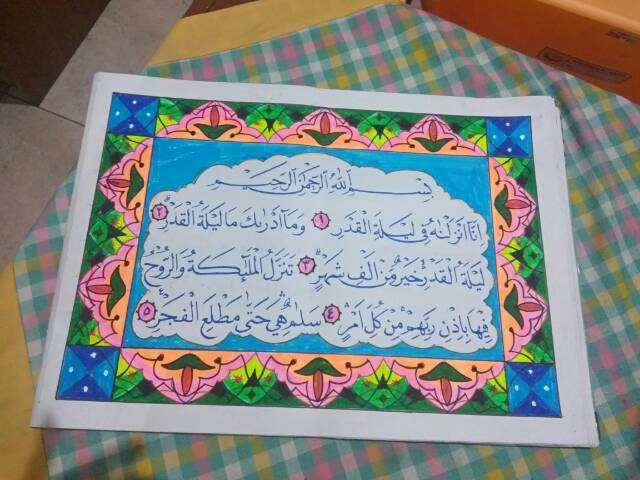 بِسْمِ اللهِ الرَّحْمٰنِ الرَّحِيْمِ
اِنَّا اَنْزَلْنٰهُ فِيْ لَيْلَةِ الْقَدْرِ ١ وَمَآ اَدْرٰىكَ مَا لَيْلَةُ الْقَدْرِ ٢
لَيْلَةُ الْقَدْرِ خَيْرٌ مِّنْ اَلْفِ شَهْرٍ ٣ تَنَزَّلُ الْمَلٰٓئِكَةُ وَالرُّوْحُ
فِيْهَا بِاِذْنِ رَبِّهِمْ مِّنْ كُلِّ اَمْرٍ ٤ سَلٰمٌ هِيَ حَتّٰى مَطْلَعِ الْفَجْرِ ٥